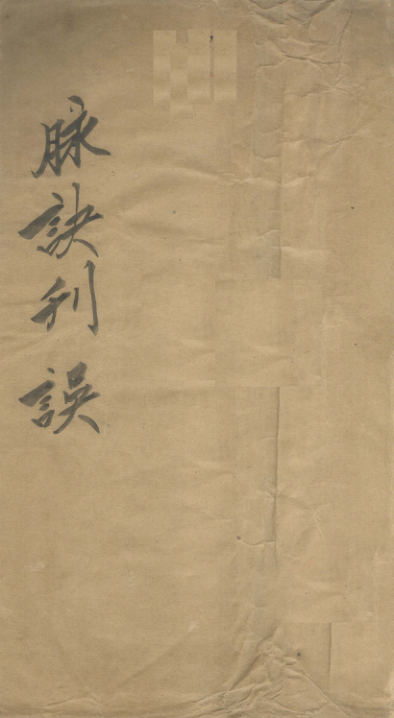 脉訣刋誤